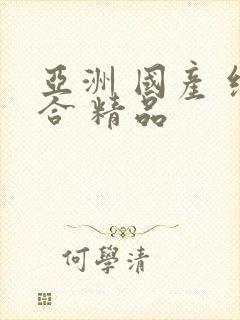 亞洲 國產
合 精品
何學清